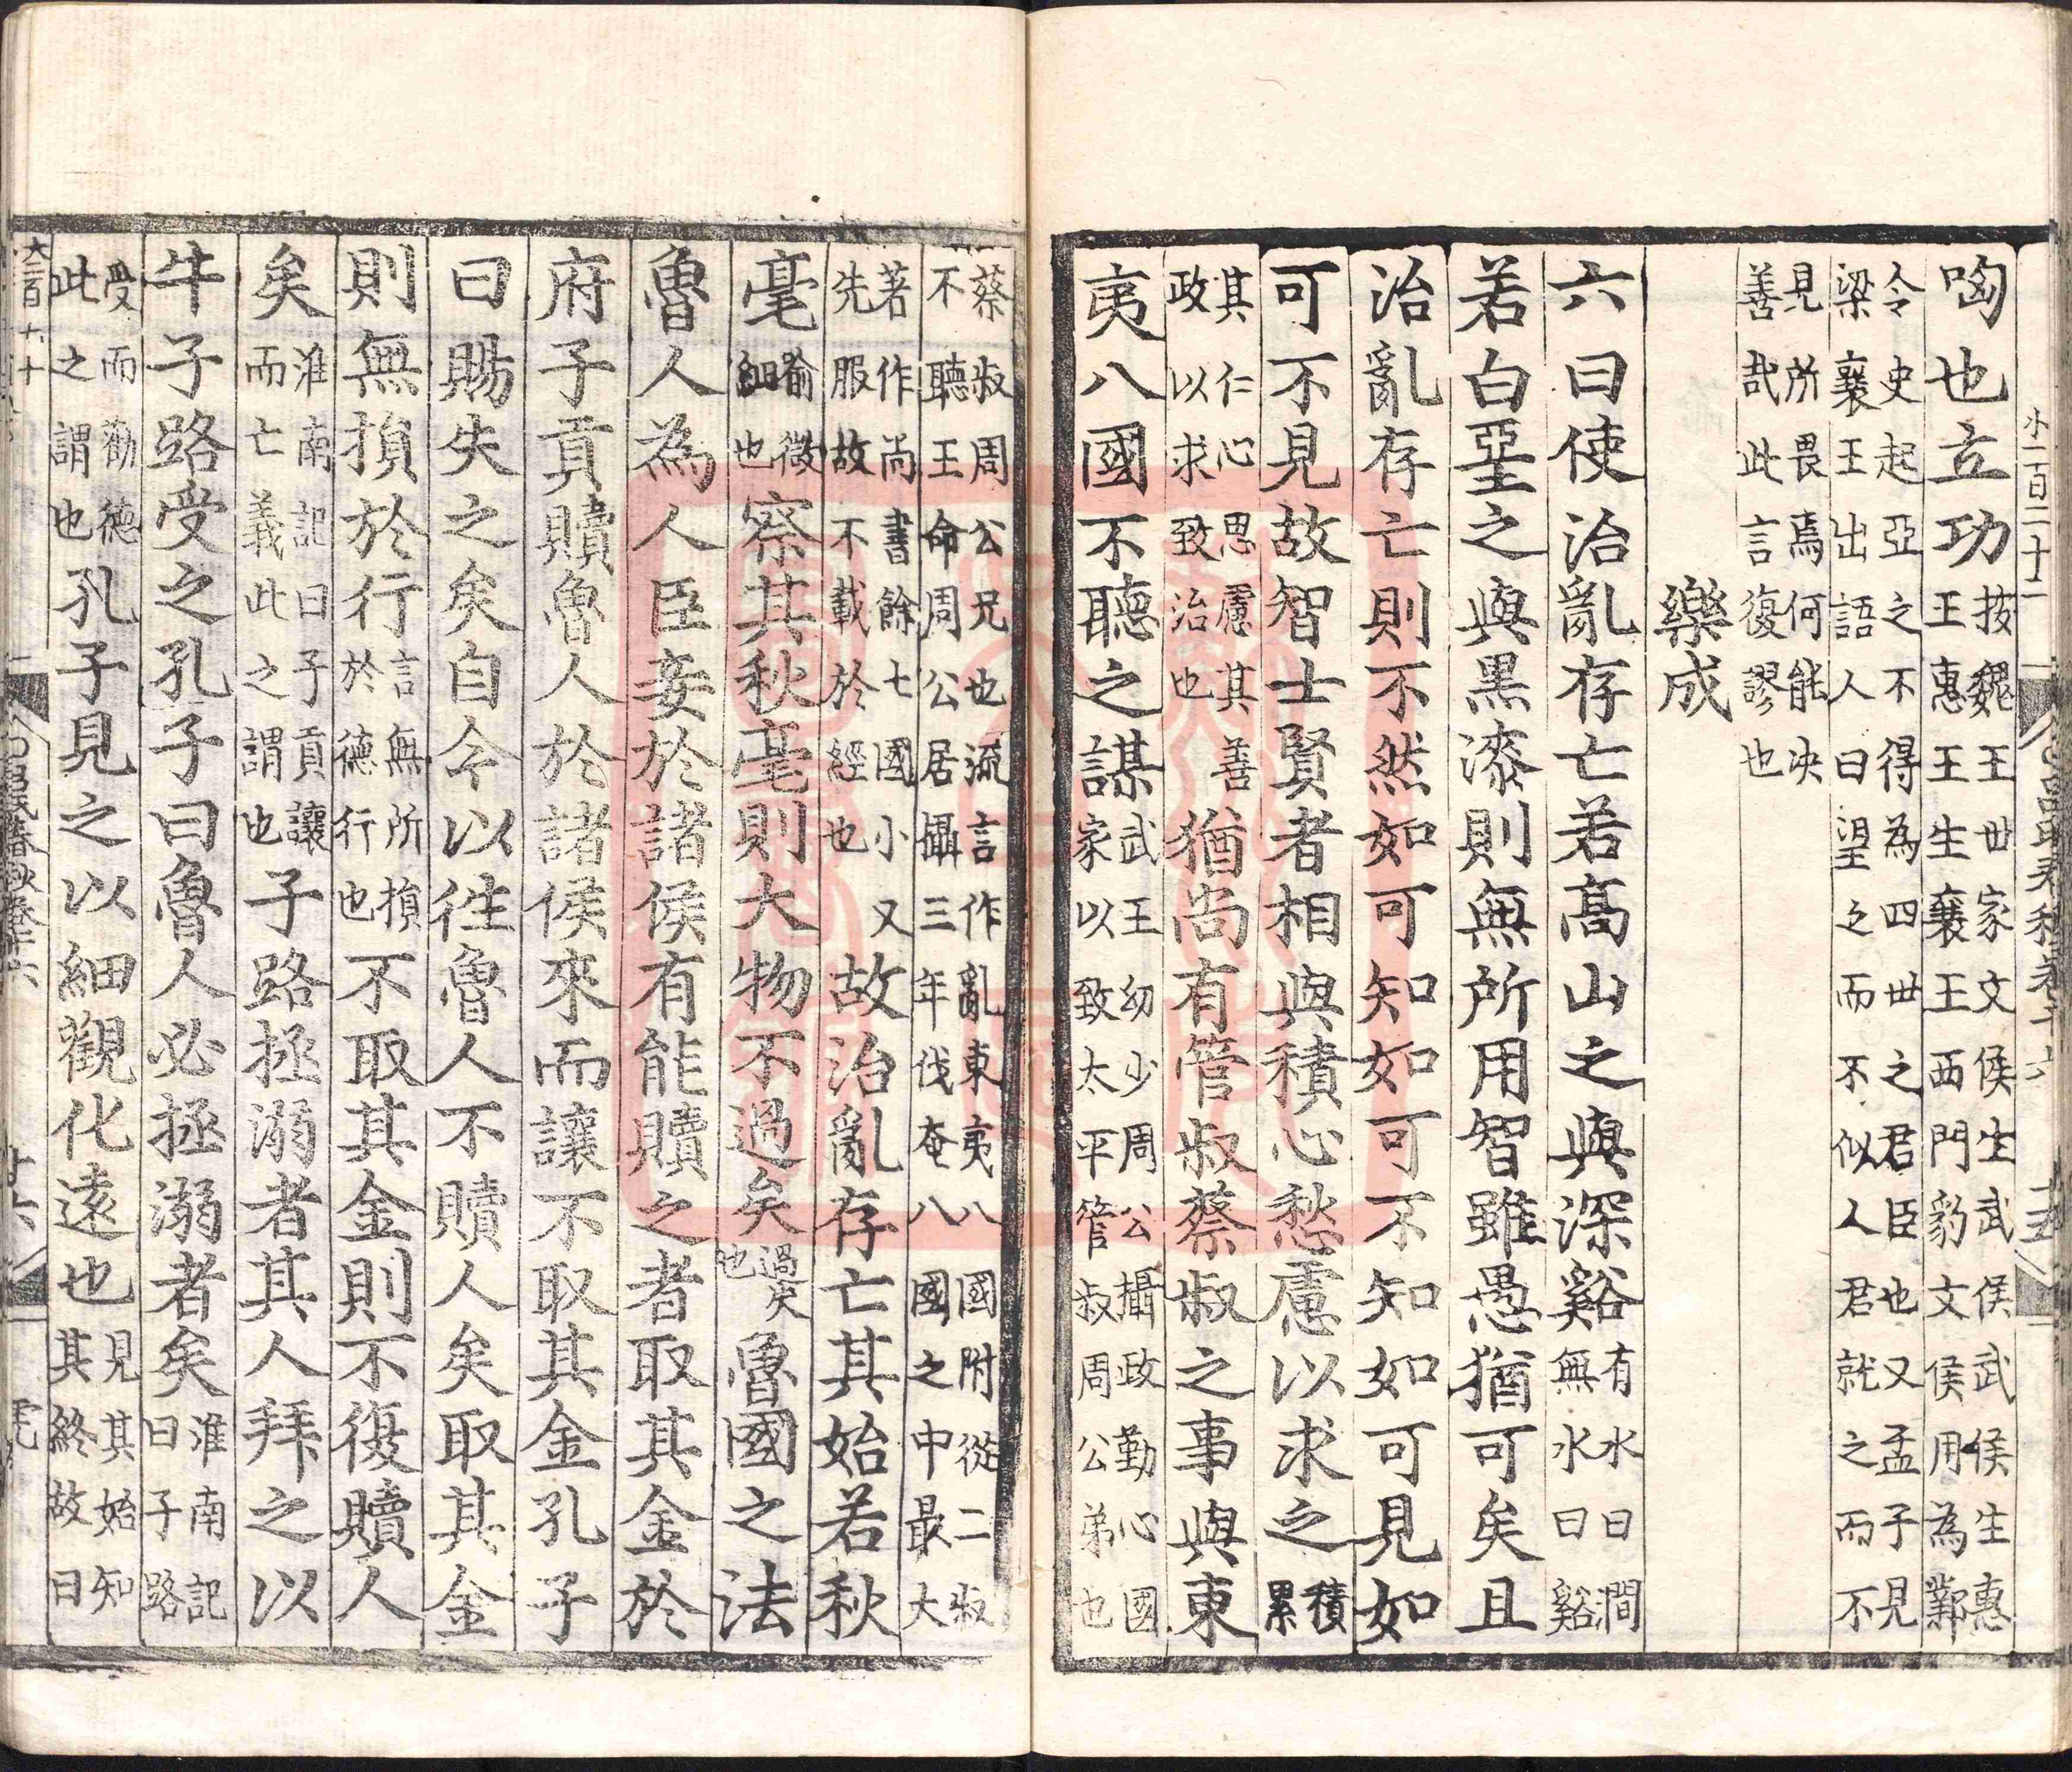 小一百二十二
呂氏春秋卷十六
哅也立功技魏王世家文侯生武侯武侯生惠
王惠王王生襄王西門豹文侯用為鄴
令史起亞之不得為四世之君臣也又孟子見
梁襄王出語人曰望之而不似人君就之而不
見所畏焉何能决
善哉此言復謬也
樂成
六曰使治亂存亡若高山之與深谿有水曰澗
無水曰谿
若白堊之與黑漆則無所用智雖愚猶可矣且
治亂存亡則不然如可知如可不知如可見如
可不見故智士賢者相與積心愁慮以求之積
累
其仁心思慮其善
政以求致治也猶尚有管叔蔡叔之事與東
夷八國不聽之謀武王幼少周公攝政勤心國
家以致太平管叔周公弟也
蔡叔周公兄也流言作亂東夷八國附從二叔
不聽王命周公居攝三年伐奄八國之中最大
著作尚書餘七國小又
先服故不載於經也故治亂存亡其始若秋
毫喻微
細也察其秋毫則大物不過矣過失
也魯國之法
魯人為人臣妾於諸侯有能贖之者取其金於
府子貢贖魯人於諸侯來而讓不取其金孔子
曰賜失之矣自今以往魯人不贖人矣取其金
則無損於行言無所損
於德行也不取其金則不復贖人
矣淮南記曰子貢讓
而亡義此之謂也子路拯溺者其人拜之以
牛子路受之孔子曰魯人必拯溺者矣淮南記
曰子路
受而勸德
此之謂也孔子見之以細觀化遠也見其始知
其終故曰
呂氏春秋卷十六
廿六